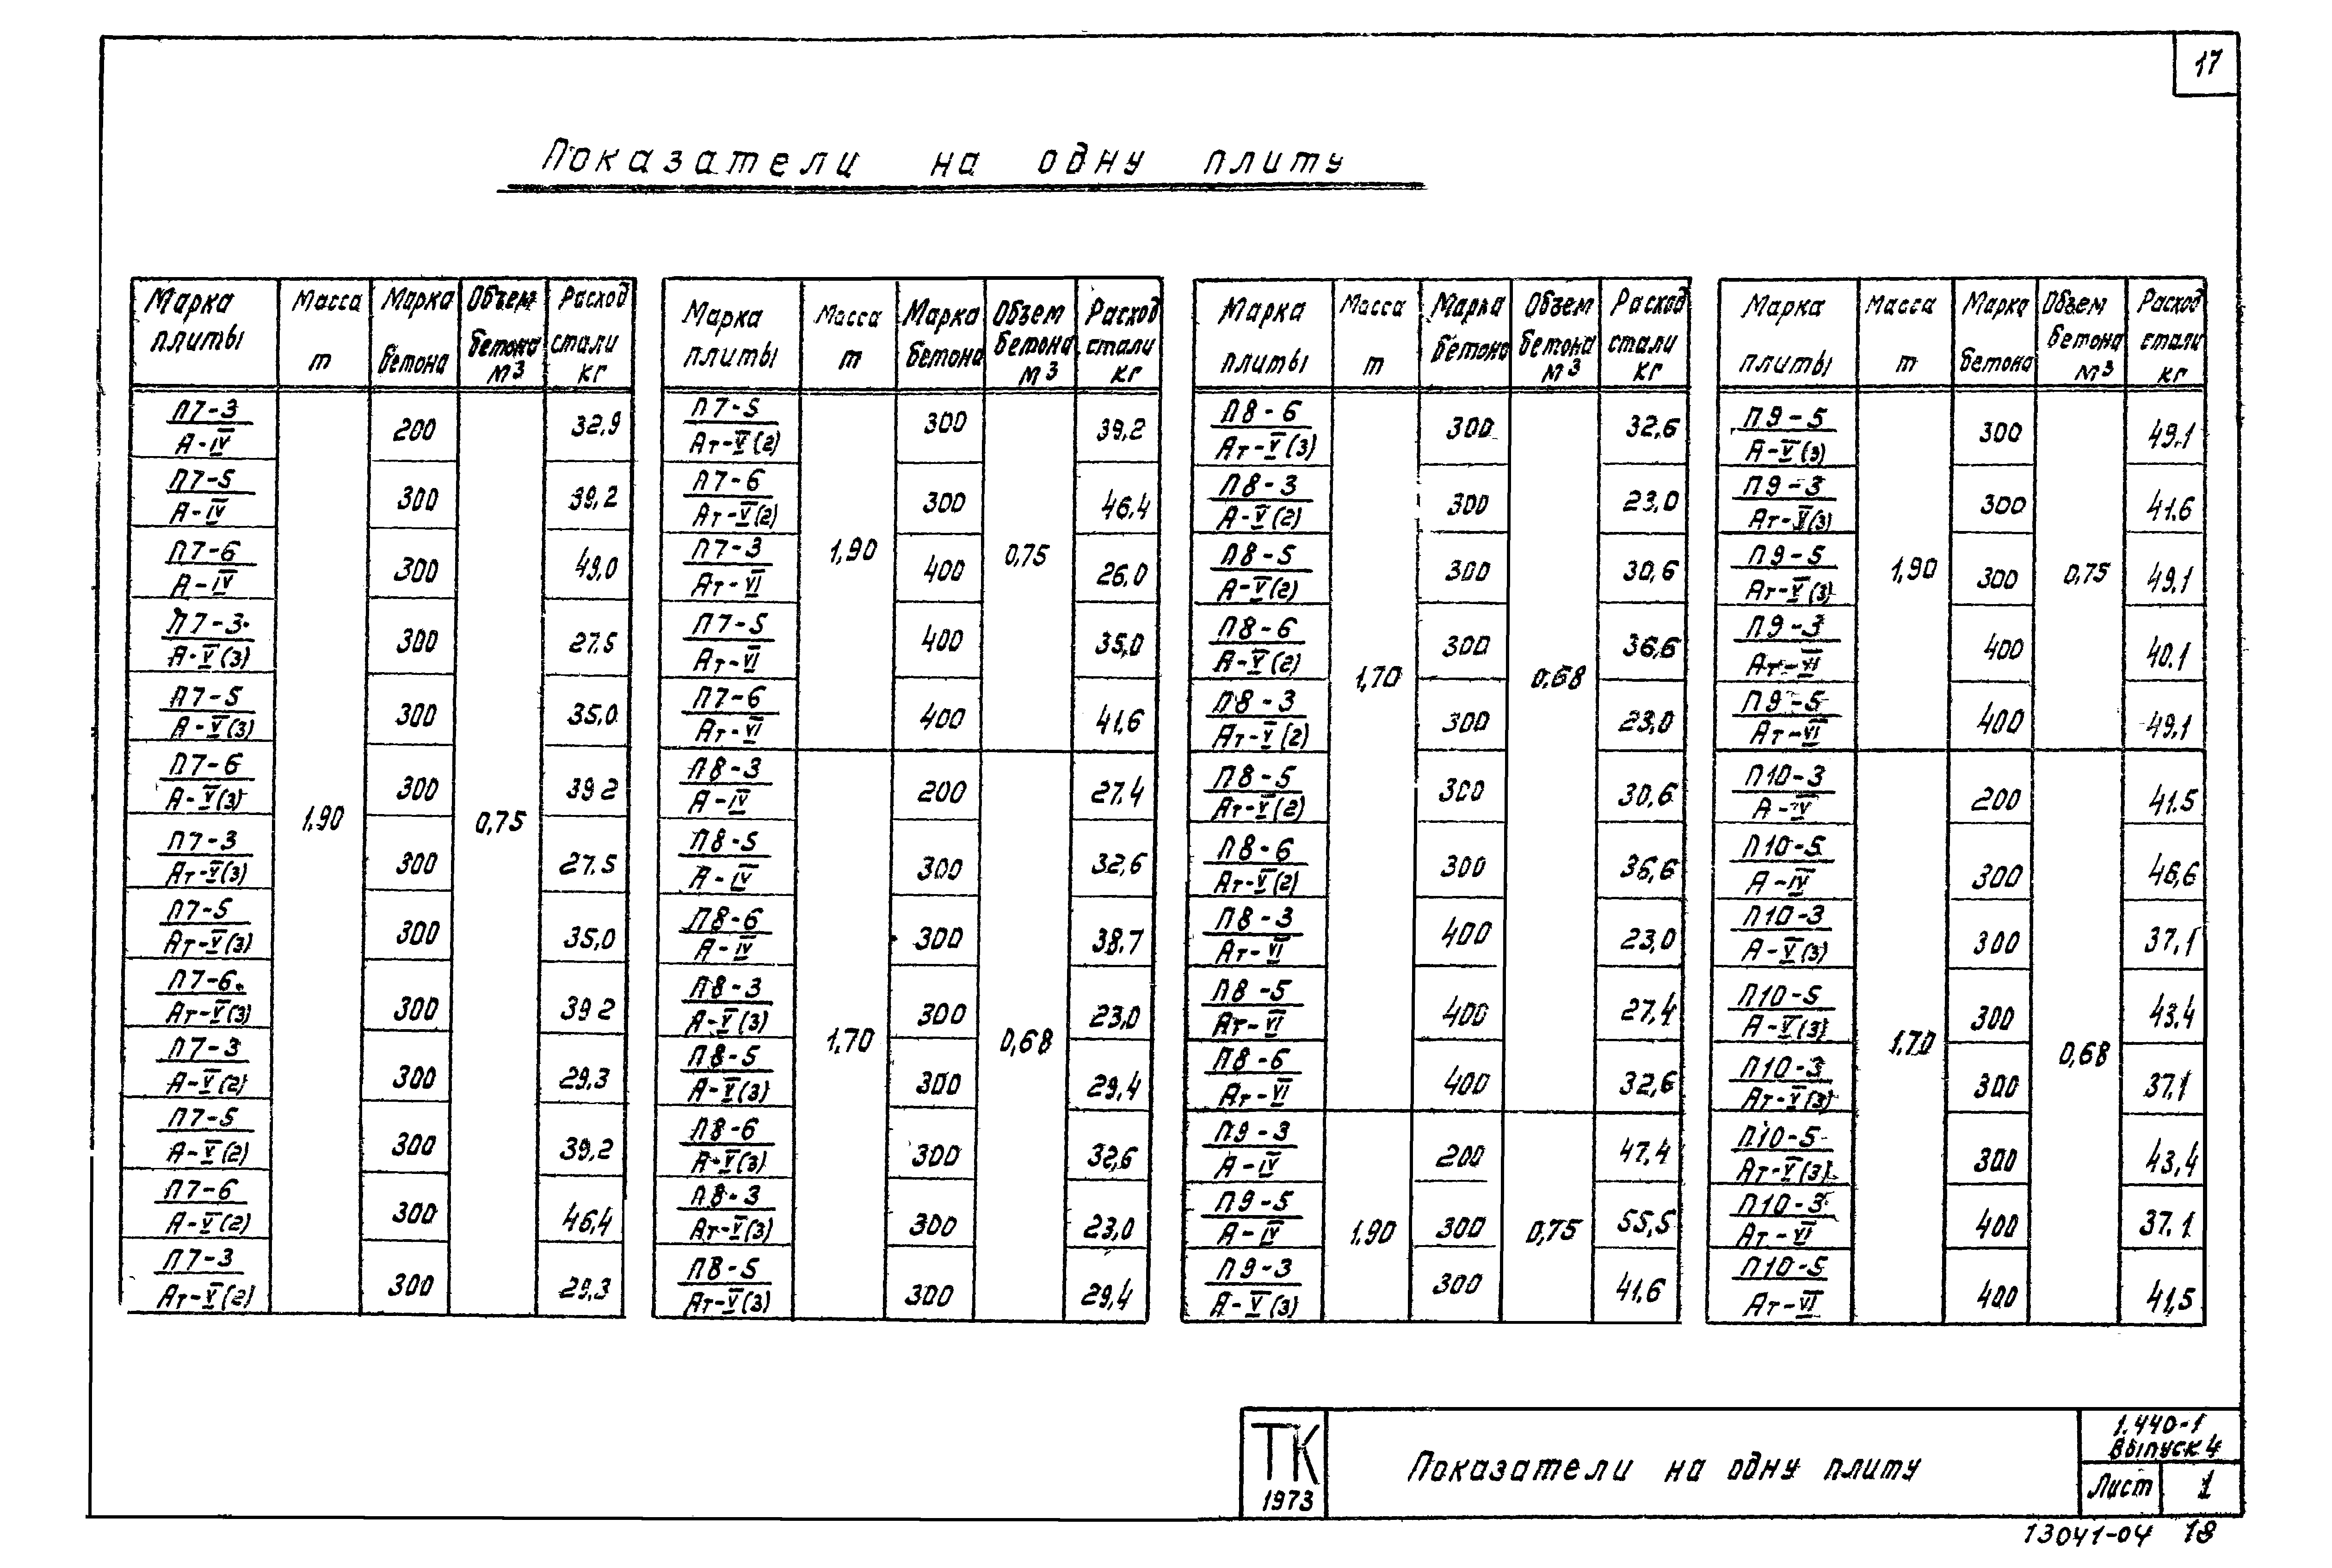 17
Показатели на одну плиту
Марка плиты | Масса т | Марка бетона | Объем бетона м3 | Расход стали кг
П7-3 / А-IV | 1,90 | 200 | 0,75 | 32,9
П7-5 / А-IV | 300 | 39,2
П7-6 / А-IV | 300 | 49,0
П7-3 / А-V(3) | 300 | 27.5
П7-5 / А-V(3) | 300 | 35,0
П7-6 / А-V(3) | 300 | 39 2
П7-3 / Ат-V(3) | 300 | 27.5
П7-5 / Ат-V(3) | 300 | 35,0
П7-6 / Ат-V(3) | 300 | 39 2
П7-3 / А-V(2) | 300 | 29.3
П7-5 / А-V(2) | 300 | 39,2
П7-6 / А-V(2) | 300 | 46,4
П7-3 / Ат-V(2) | 300 | 29,3
Марка плиты | Масса т | Марка бетона | Объем бетона м3 | Расход стали кг
П7-5 / Ат-V(2) | 1,90 | 300 | 0,75 | 39,2
П7-6 / Ат-V(2) | 300 | 46.4
П7-3 / Ат-VI | 400 | 26.0
П7-5 / Ат-VI | 400 | 35,0
П7-6 / Ат-VI | 400 | 41.6
П8-3 / А-IV | 1.70 | 200 | 0,68 | 27.4
П8-5 / А-IV | 300 | 32,6
П8-6 / А-IV | 300 | 38.7
П8-3 / А-V(3) | 300 | 23,0
П8-5 / А-V(3) | 300 | 29,4
П8-6 / А-V(3) | 300 | 32,6
П8-3 / Ат-V(3) | 300 | 23,0
П8-5 / Ат-V(3) | 300 | 29,4
Марка плиты | Масса т | Марка бетона | Объем бетона м3 | Расход стали кг
П8-6 / Ат-V(3) | 1,70 | 300 | 0,68 | 32,6
П8-3 / А-V(2) | 300 | 23,0
П8-5 / А-V(2) | 300 | 30,6
П8-6 / А-V(2) | 300 | 36,6
П8-3 / Ат-V(2) | 300 | 23,0
П8-5 / Ат-V(2) | 300 | 30,6
П8-6 / Ат-V(2) | 300 | 36,6
П8-3 / Ат-VI | 400 | 23,0
П8-5 / Ат-VI | 400 | 27,4
П8-6 / Ат-VI | 400 | 32,6
П9-3 / А-IV | 1.90 | 200 | 0,75 | 47,4
П9-5 / А-IV | 300 | 55,5
П9-3 / А-V(3) | 300 | 41,6
Марка плиты | Масса т | Марка бетона | Объем бетона м3 | Расход стали кг
П9-5 / А-V(3) | 1,90 | 300 | 0,75 | 49.1
П9-3 / Ат-V(3) | 300 | 41.6
П9-5 / Ат-V(3) | 300 | 49.1
П9-3 / Ат-VI | 400 | 40.1
П9-5 / Ат-VI | 400 | 49.1
П10-3 / А-IV | 1.70 | 200 | 0,68 | 41.5
П10-5 / А-IV | 300 | 46,6
П10-3 / А-V(3) | 300 | 37,1
П10-5 / А-V(3) | 300 | 43.4
П10-3 / Ат-V(3) | 300 | 37.1
П10-5 / Ат-V(3) | 300 | 43,4
П10-3 / Ат-VI | 400 | 37.1
П10-5 / Ат-VI | 400 | 41,5
ТК
1973
Показатели на одну плиту
1.440-1
Выпуск 4
Лист 1
13041-04 18